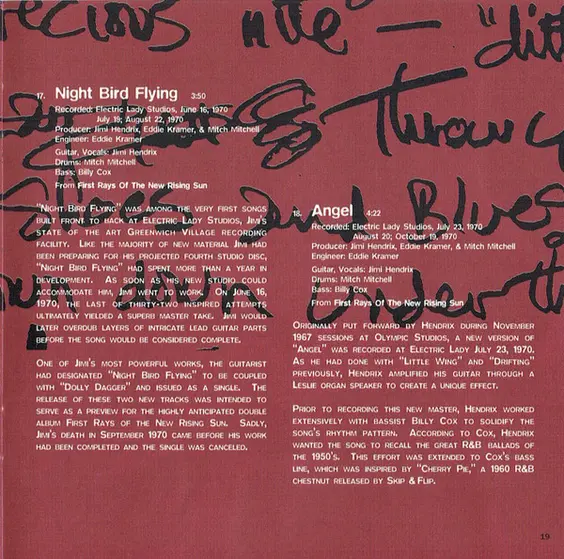 recious nite — "dit
Throug
and Blues
down under th
17. Night Bird Flying 3:50
Recorded: Electric Lady Studios, June 16, 1970
July 19; August 22, 1970
Producer: Jimi Hendrix, Eddie Kramer, & Mitch Mitchell
Engineer: Eddie Kramer
Guitar, Vocals: Jimi Hendrix
Drums: Mitch Mitchell
Bass: Billy Cox
From First Rays Of The New Rising Sun
"Night Bird Flying" was among the very first songs
built front to back at Electric Lady Studios, Jimi's
state of the art Greenwich Village recording
facility. Like the majority of new material Jimi had
been preparing for his projected fourth studio disc,
"Night Bird Flying" had spent more than a year in
development. As soon as his new studio could
accommodate him, Jimi went to work. On June 16,
1970, the last of thirty-two inspired attempts
ultimately yielded a superb master take. Jimi would
later overdub layers of intricate lead guitar parts
before the song would be considered complete.
One of Jimi's most powerful works, the guitarist
had designated "Night Bird Flying" to be coupled
with "Dolly Dagger" and issued as a single. The
release of these two new tracks was intended to
serve as a preview for the highly anticipated double
album First Rays Of The New Rising Sun. Sadly,
Jimi's death in September 1970 came before his work
had been completed and the single was canceled.
18. Angel 4:22
Recorded: Electric Lady Studios, July 23, 1970
August 20; October 19, 1970
Producer: Jimi Hendrix, Eddie Kramer, & Mitch Mitchell
Engineer: Eddie Kramer
Guitar, Vocals: Jimi Hendrix
Drums: Mitch Mitchell
Bass: Billy Cox
From First Rays Of The New Rising Sun
Originally put forward by Hendrix during November
1967 sessions at Olympic Studios, a new version of
"Angel" was recorded at Electric Lady July 23, 1970.
As he had done with "Little Wing" and "Drifting"
previously, Hendrix amplified his guitar through a
Leslie organ speaker to create a unique effect.
Prior to recording this new master, Hendrix worked
extensively with bassist Billy Cox to solidify the
song's rhythm pattern. According to Cox, Hendrix
wanted the song to recall the great R&B ballads of
the 1950's. This effort was extended to Cox's bass
line, which was inspired by "Cherry Pie," a 1960 R&B
chestnut released by Skip & Flip.
19